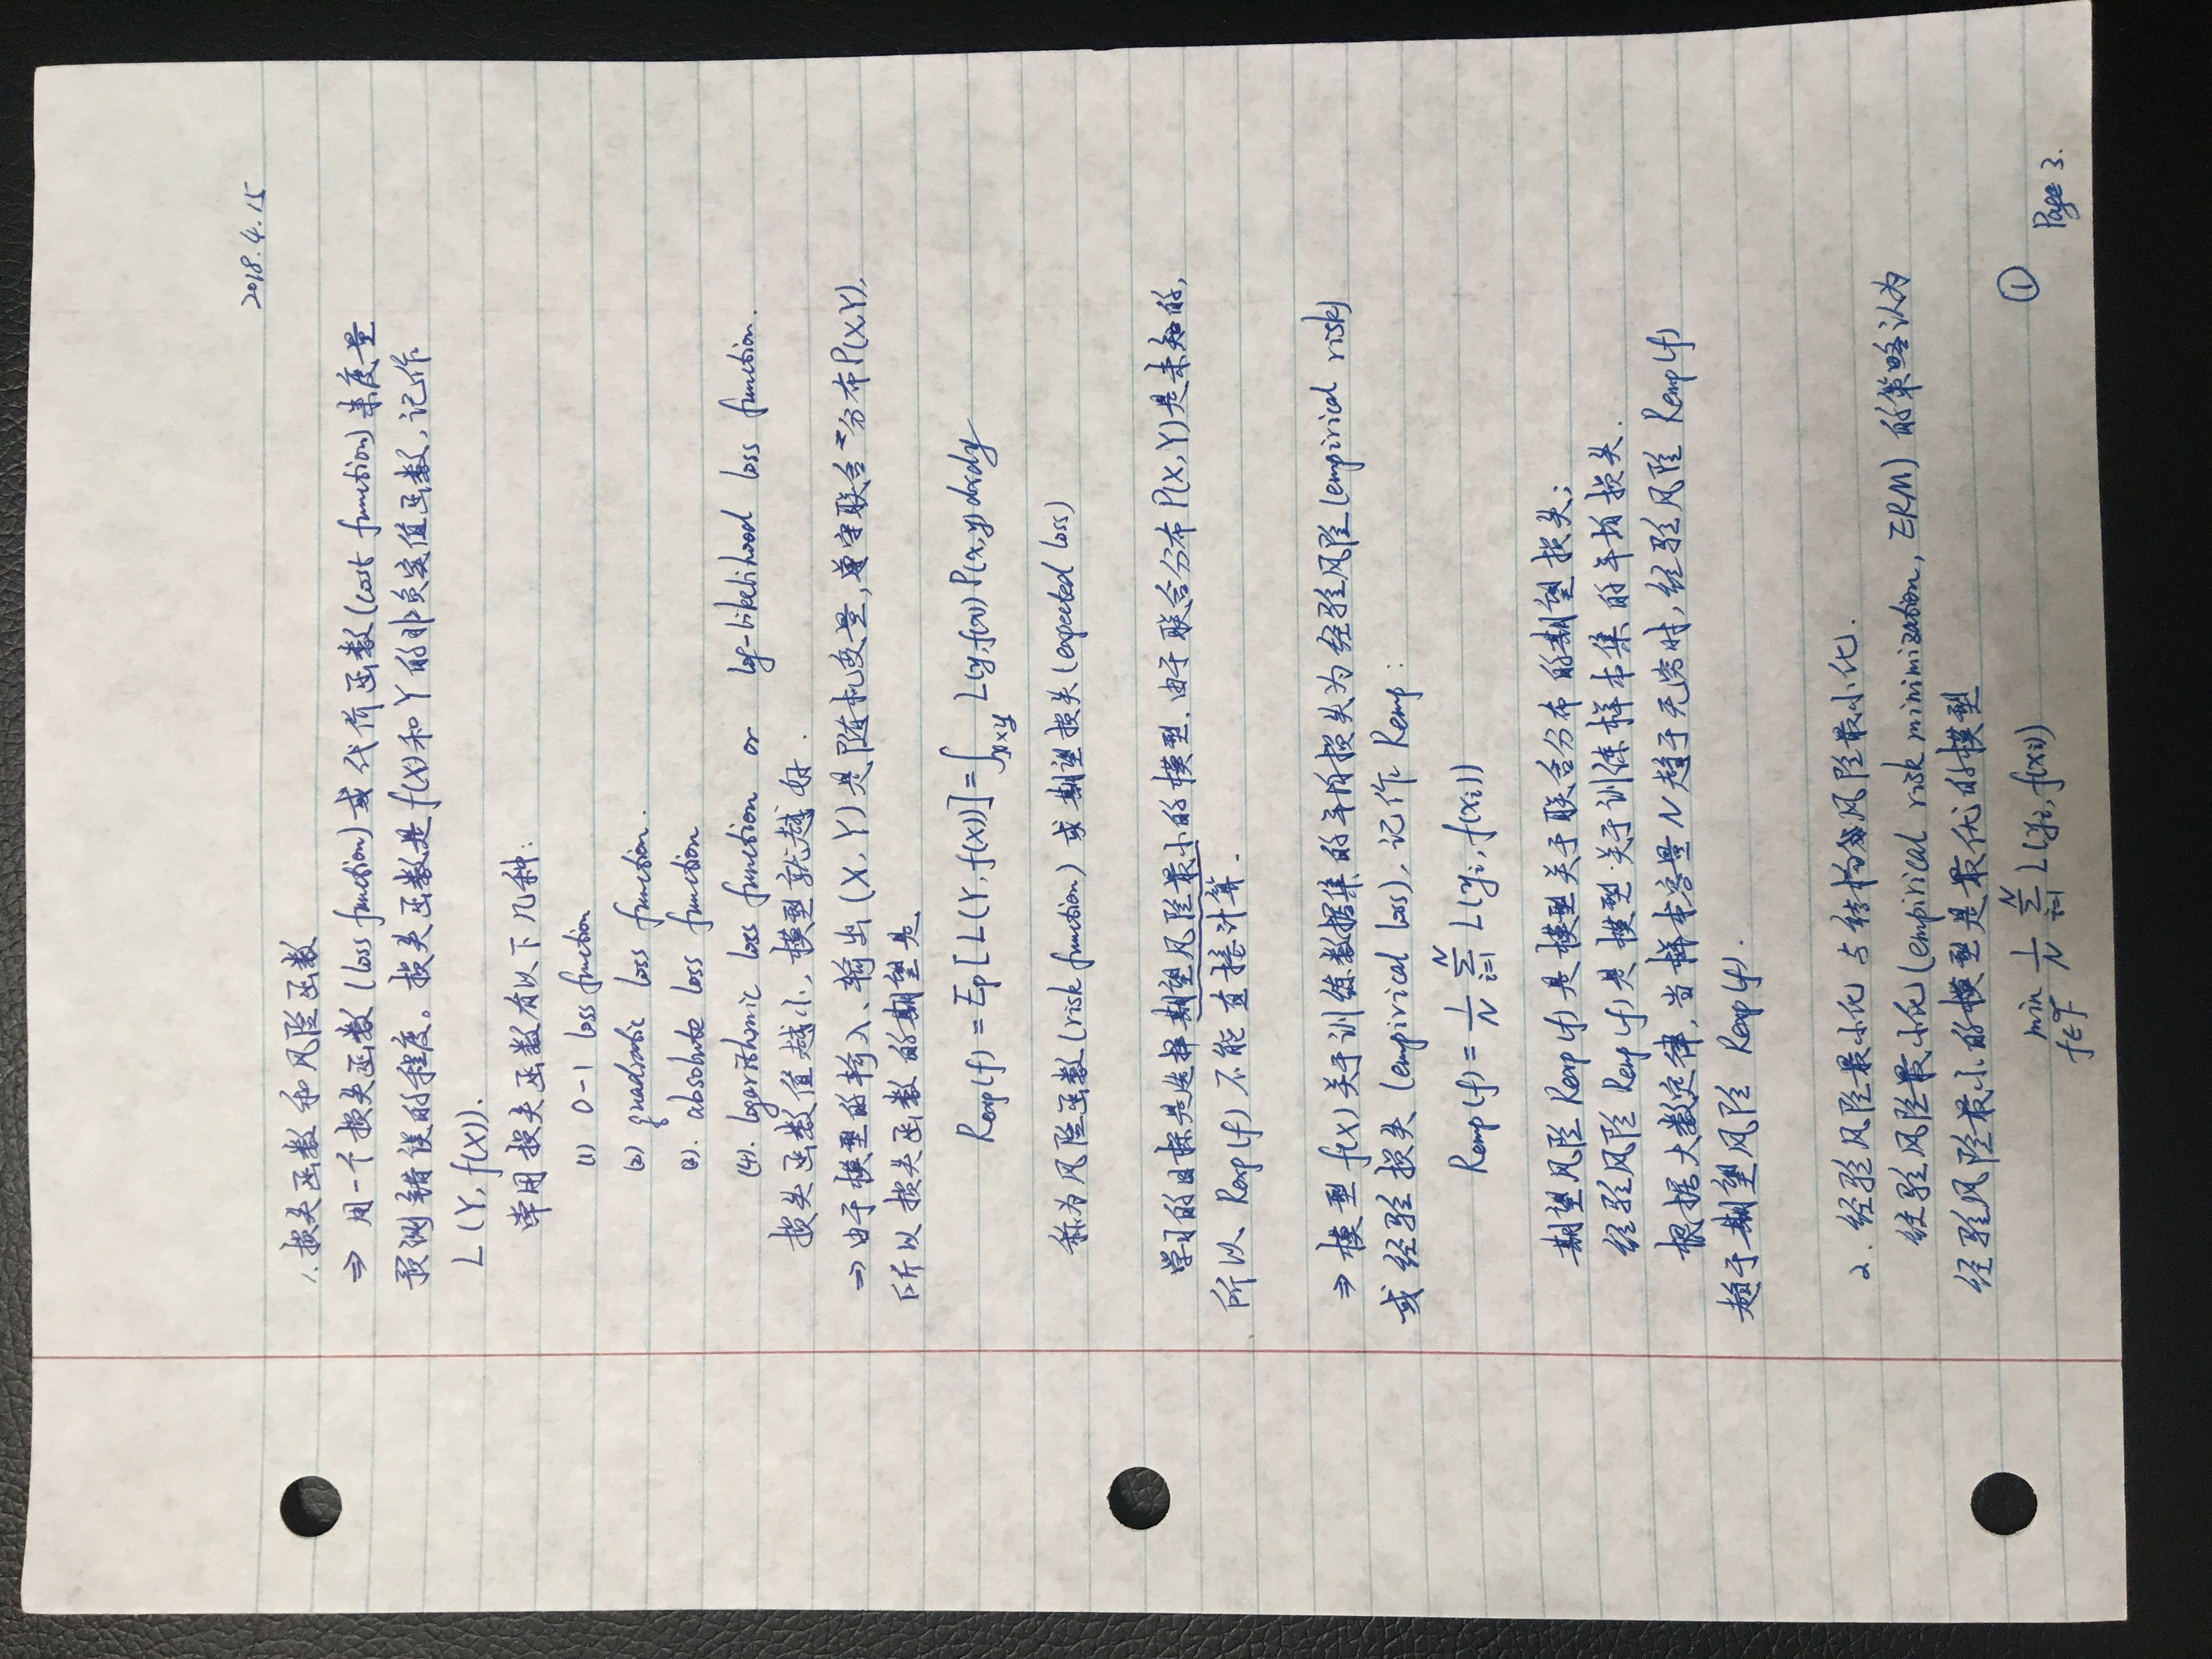 2018.4.15
1.损失函数和风险函数
⇒ 用一个损失函数(loss function)或代价函数(cost function)来度量
预测错误的程度。损失函数是f(X)和Y的非负实值函数,记作
L(Y, f(X)).
常用损失函数有以下几种:
(1) 0-1 loss function
(2) quadratic loss function.
(3). absolute loss function
(4). logarithmic loss function or log-likelihood loss function.
损失函数值越小,模型就越好.
⇒由于模型的输入、输出(X,Y)是随机变量,遵守联合分布P(X,Y),
所以损失函数的期望是
Rexp(f) = Ep[L(Y, f(X))] = ∫x×y L(y,f(x)) P(x,y) dxdy
称为风险函数(risk function)或期望损失(expected loss)
学习的目标是选择期望风险最小的模型.由于联合分布P(X,Y)是未知的,
所以 Rexp(f) 不能直接计算.
⇒ 模型f(X)关于训练数据集的平均损失为经验风险(empirical risk)
或经验损失(empirical loss),记作 Remp:
Remp(f) = 1/N Σ_{i=1}^{N} L(yi, f(xi))
期望风险Rexp(f)是模型关于联合分布的期望损失;
经验风险Remp(f)是模型关于训练样本集的平均损失.
根据大数定律,当样本容量N趋于无穷时,经验风险Remp(f)
趋于期望风险 Rexp(f).
2.经验风险最小化与结构风险最小化.
经验风险最小化(empirical risk minimization, ERM)的策略认为
经验风险最小的模型是最优的模型
min_{f∈F} 1/N Σ_{i=1}^{N} L(yi, f(xi))
①
Page 3.